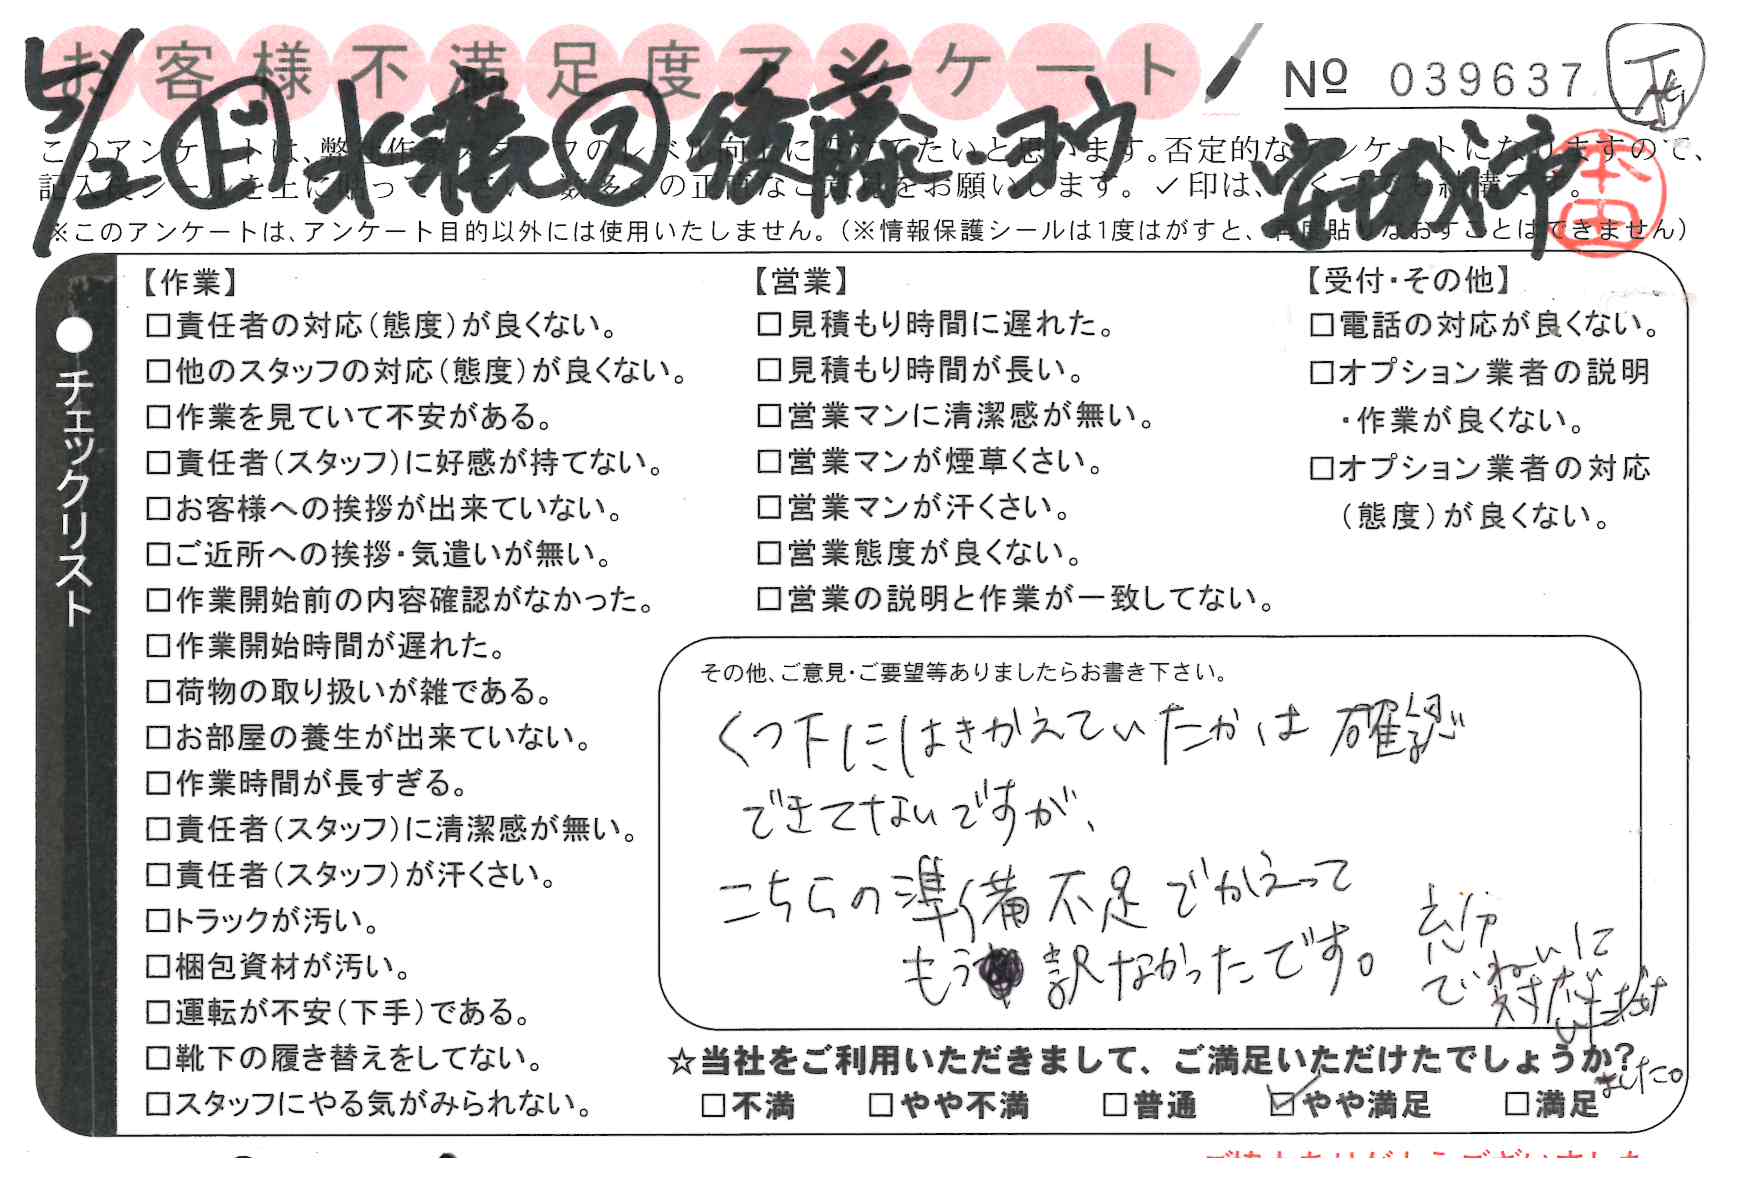 お客様不満足度アンケート
№ 039637
5/2 水穂 又 後藤・コウ 安城市
本田
このアンケートは、弊社作業スタッフのレベル向上に役立てたいと思います。否定的なアンケートになりますので、
記入後シールを上に貼って下さい。数多くの正直なご意見をお願いします。✓印は、いくつでも結構です。
※このアンケートは、アンケート目的以外には使用いたしません。(※情報保護シールは1度はがすと、再度貼りなおすことはできません)
●チェックリスト
【作業】
□責任者の対応(態度)が良くない。
□他のスタッフの対応(態度)が良くない。
□作業を見ていて不安がある。
□責任者(スタッフ)に好感が持てない。
□お客様への挨拶が出来ていない。
□ご近所への挨拶・気遣いが無い。
□作業開始前の内容確認がなかった。
□作業開始時間が遅れた。
□荷物の取り扱いが雑である。
□お部屋の養生が出来ていない。
□作業時間が長すぎる。
□責任者(スタッフ)に清潔感が無い。
□責任者(スタッフ)が汗くさい。
□トラックが汚い。
□梱包資材が汚い。
□運転が不安(下手)である。
□靴下の履き替えをしてない。
□スタッフにやる気がみられない。
【営業】
□見積もり時間に遅れた。
□見積もり時間が長い。
□営業マンに清潔感が無い。
□営業マンが煙草くさい。
□営業マンが汗くさい。
□営業態度が良くない。
□営業の説明と作業が一致してない。
【受付・その他】
□電話の対応が良くない。
□オプション業者の説明
・作業が良くない。
□オプション業者の対応
(態度)が良くない。
その他、ご意見・ご要望等ありましたらお書き下さい。
くつ下にはきかえていたかは確認
できてないですが、
こちらの準備不足でかえって
もう訳なかったです。
でねいに
対応いただけ
ました。
☆当社をご利用いただきまして、ご満足いただけたでしょうか?
□不満 □やや不満 □普通 ☑やや満足 □満足
ご協力ありがとうございました